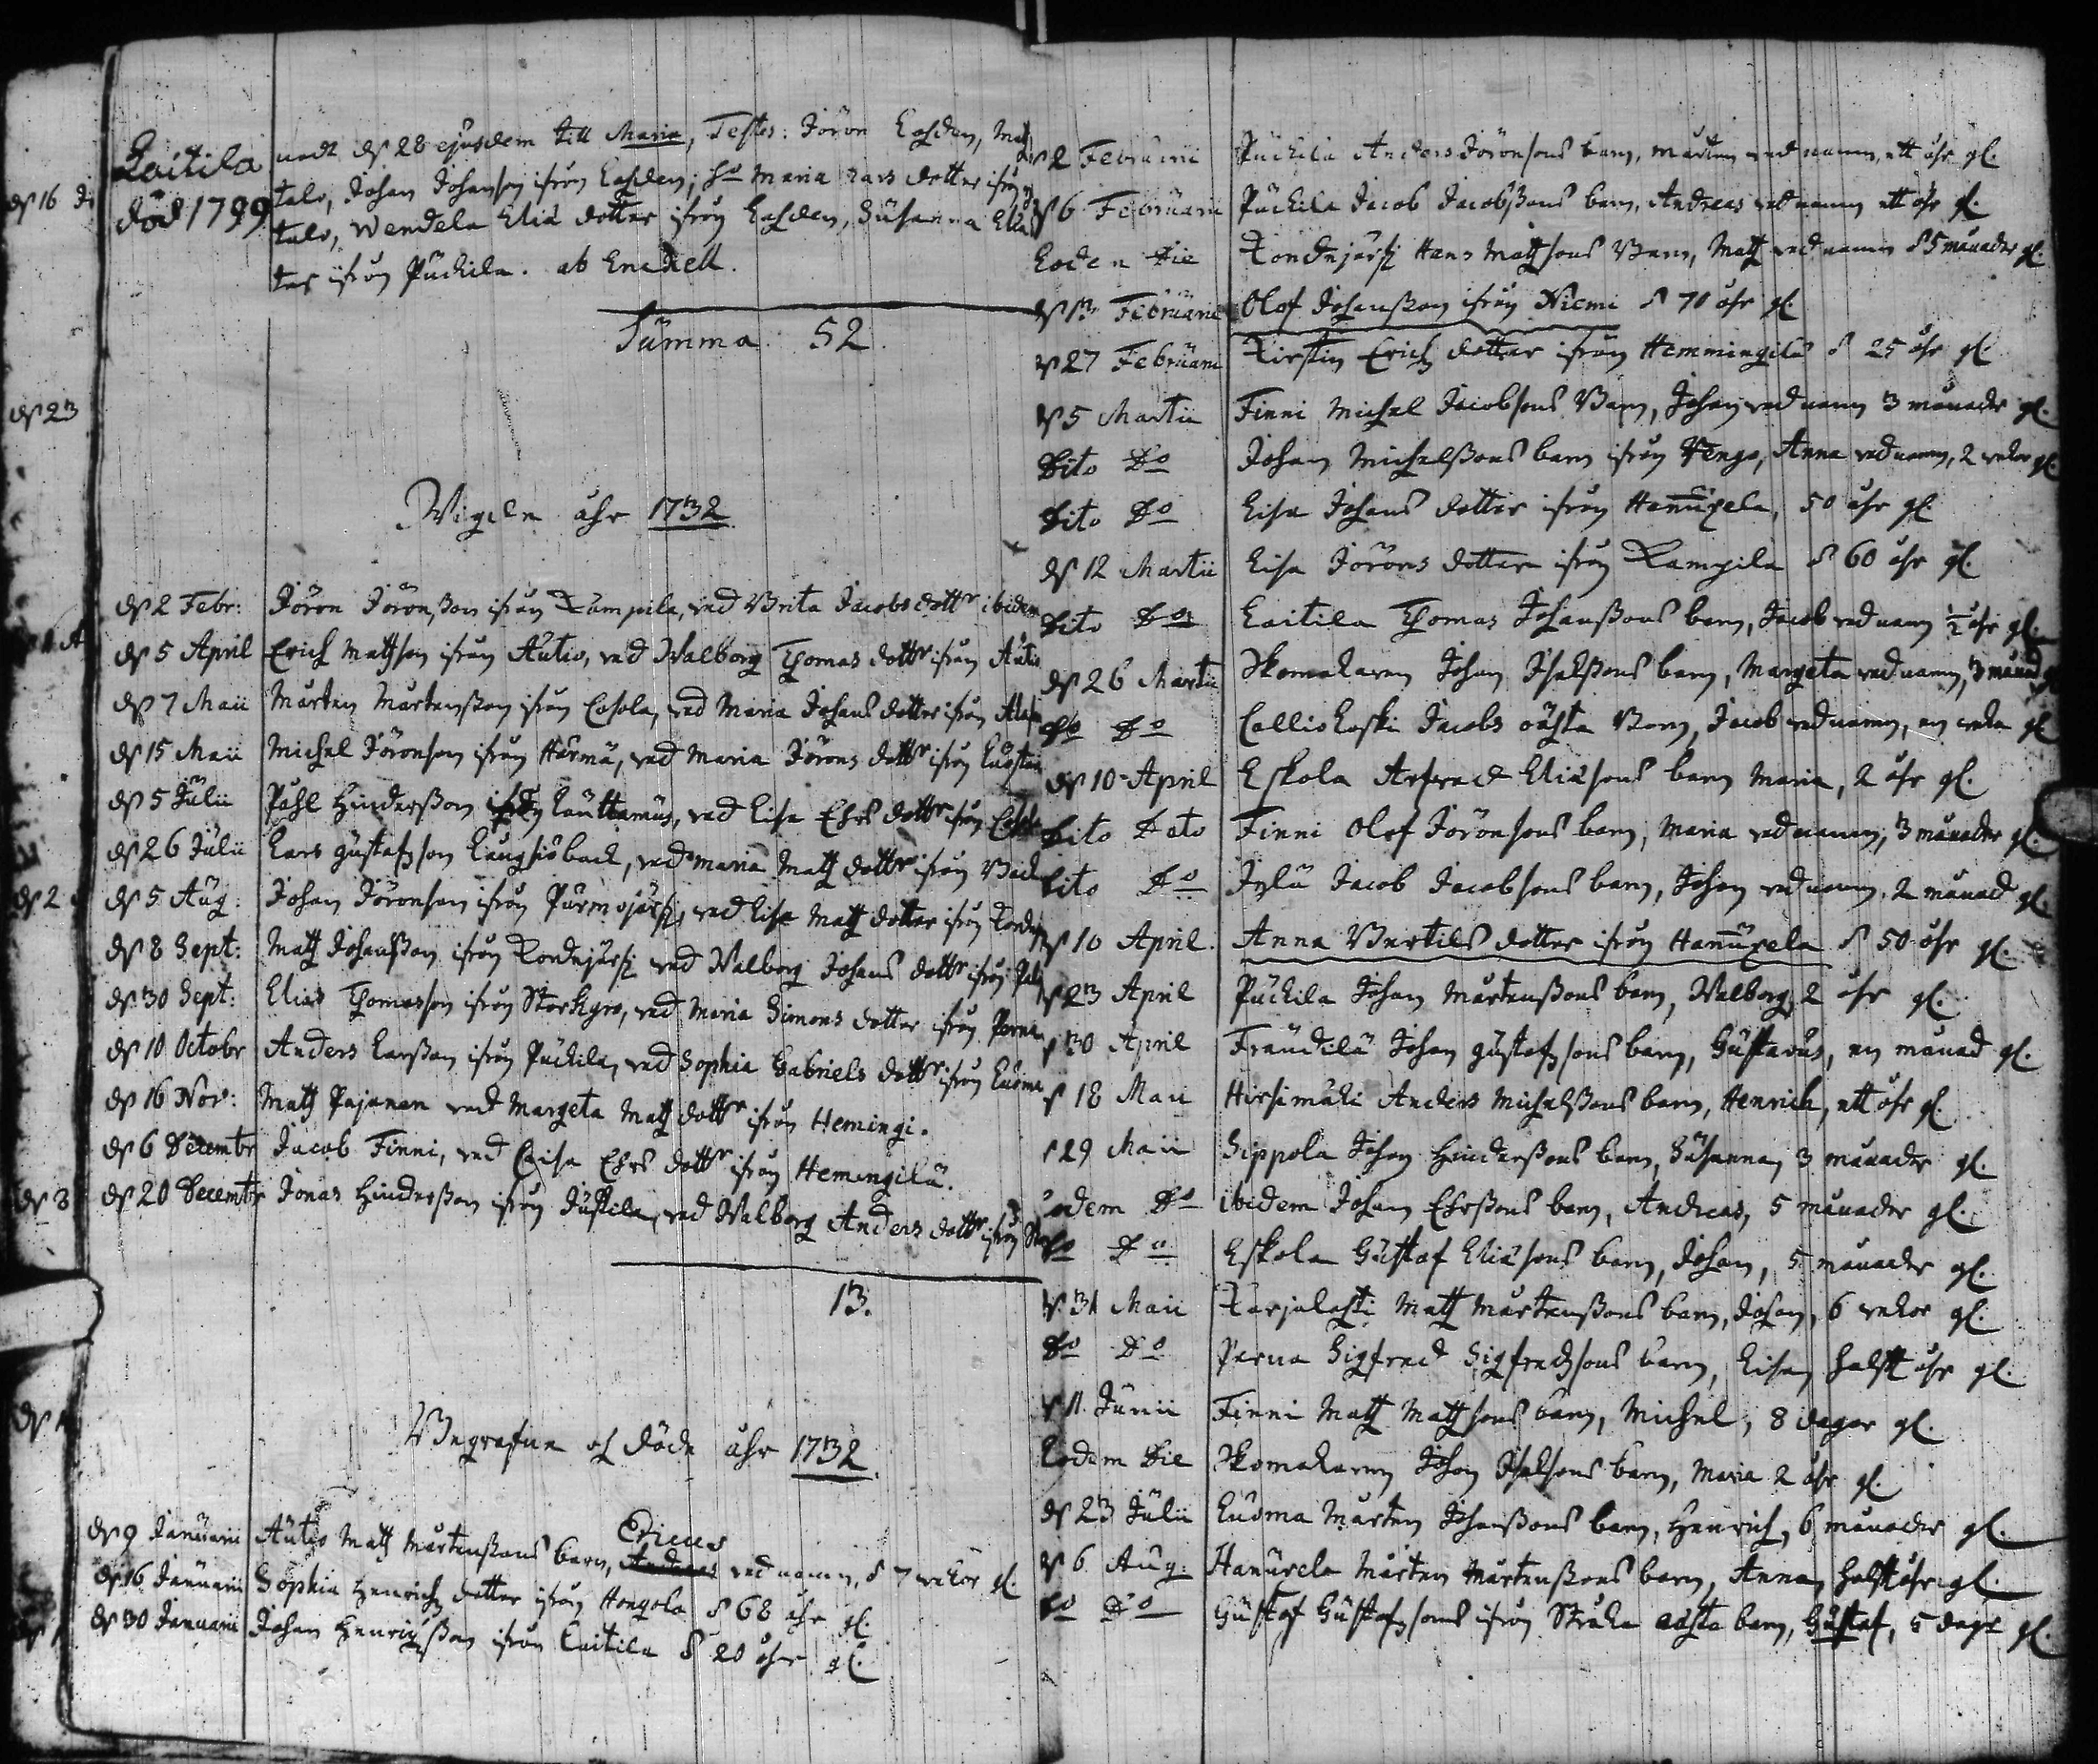 Laitila
död 1799
nadt d. 28 ejusdem till Maria, Testes: Jöron Lassden, Matz
talo, Johan Johanson ifrån Lassden; Ho Maria Lars dotter ifrån
talo, Wendela Eliæ dotter ifrån Lassden, Susanna Eliæ
ter ifrån Puckila. ab Enckell.
Summa 52.
Wigde åhr 1732
d. 2 Febr: Jöron Jöronsson ifrån Kampila, med Brita Jacobs dottr ibidem
d. 5 April Erich Mathsson ifrån Autio, med Walborg Thomas dottr ifrån Autio
d. 7 Maii Mårten Mårtensson ifrån Cosola, med Maria Johans dotter ifrån
d. 15 Maii Michel Jöronson ifrån Härmä, med Maria Jörons dottr ifrån
d. 5 Julii Påhl Hindersson ifrån Lauttamus, med Lisa Ehrs dottr ifrån
d. 26 Julii Lars Gustafsson Laughisback, med Maria Matz dottr ifrån Back
d. 5 Aug: Johan Jöronson ifrån Purmojärfj, med Lisa Matz dotter ifrån
d. 8 Sept: Matz Johansson ifrån Kordejärfj med Walborg Johans dottr ifrån
d. 30 Sept: Elias Thomasson ifrån Storkyro, med Maria Simons dotter ifrån Perna
d. 10 Octobr Anders Larsson ifrån Puckila, med Sophia Gabriels dottr ifrån Luoma
d. 16 Nov: Matz Pajanen med Margeta Matz dottr ifrån Hemingi.
d. 6 Decembr Jacob Finni, med Caisa Ehrs dottr ifrån Hemingilä.
d. 20 Decembr Jonas Hindersson ifrån Jussila, med Walborg Anders dottr ifrån
13.
Begrafne och döde åhr 1732.
d. 9 Januarii Autio Matz Mårtenssons barn, Andreas Ericus wed namn, å 7 wekor gl.
d. 16 Januarii Sophia Henrichs dotter ifrån Hongola å 68 åhr gl.
d. 30 Januarii Johan Henrichsson ifrån Laitila å 20 åhr gl.
d. 2 Februarii Puckila Anders Jöronsons barn, Mårten wed namn, ett åhr gl.
d. 6 Februarii Puckila Jacob Jacobssons barn, Andreas wed namn ett åhr gl.
Eoden Die Kondejärfj Hans Matzsons Barn, Matz wed namn å 5 månader gl.
d. 13 Februarii Olof Johansson ifrån Niemi å 70 åhr gl.
d. 27 Februarii Kirstin Erichs dotter ifrån Hemmingilä å 25 åhr gl.
d. 5 Martii Finni Michel Jacobsons Barn, Johan wed namn 3 månader gl.
Dito Do Johan Michelssons barn ifrån Tengo, Anna wed namn, 2 wekor gl.
Dito Do Lisa Johans dotter ifrån Hanuxela, 50 åhr gl.
d. 12 Martii Lisa Jörons dotter ifrån Kampila å 60 åhr gl.
Dito Do Laitila Thomas Johanssons barn, Jacob wed namn ½ åhr gl.
d. 26 Martii Skomakaren Johan Isakssons barn, Margeta wed namn, 3 månad gl.
Do Do Calliokoski Jacobs oächta Barn, Jacob wed namn, en weka gl.
d. 10 April Eskola Arfwed Eliæsons barn Maria, 2 åhr gl.
Dito Dato Finni Olof Jöronsons barn, Maria wed namn, 3 månader gl.
Dito Do Jylü Jacob Jacobsons barn, Johan wed namn, 2 månad gl.
d. 10 April. Anna Bertils dotter ifrån Hanuxela å 50 åhr gl.
d. 23 April Puckila Johan Mårtenssons barn, Walborg, 2 åhr gl.
d. 30 April Fraudilä Johan Gustafssons barn, Gustavus, en månad gl.
d. 18 Maii Hirsimäki Anders Michelssons barn, Henrich, ett åhr gl.
d. 29 Maii Sippola Johan Hinderssons barn, Susanna, 3 månader gl.
Eodem Do ibidem Johan Ehrssons barn, Andreas, 5 månader gl.
Do Do Eskola Gustaf Eliæsons barn, Johan, 5 månader gl.
d. 31 Maii Karjalasti Matz Mårtenssons barn, Johan, 6 wekor gl.
Do Do Perna Sigfred Sigfredssons barn, Lisa, halft åhr gl.
d. 11. Junii Finni Matz Matzsons barn, Michel, 8 dagar gl.
Eodem Die Skomakaren Johan Isaksons barn, Maria 2 åhr gl.
d. 23 Julii Luoma Mårten Johanssons barn, Henrich, 6 månader gl.
d. 6 Aug. Hanuxela Mårten Mårtenssons barn, Anna, halft åhr gl.
Do Do Gustaf Gustafssons ifrån Stråka oächta barn, Gustaf, 5 dagr gl.